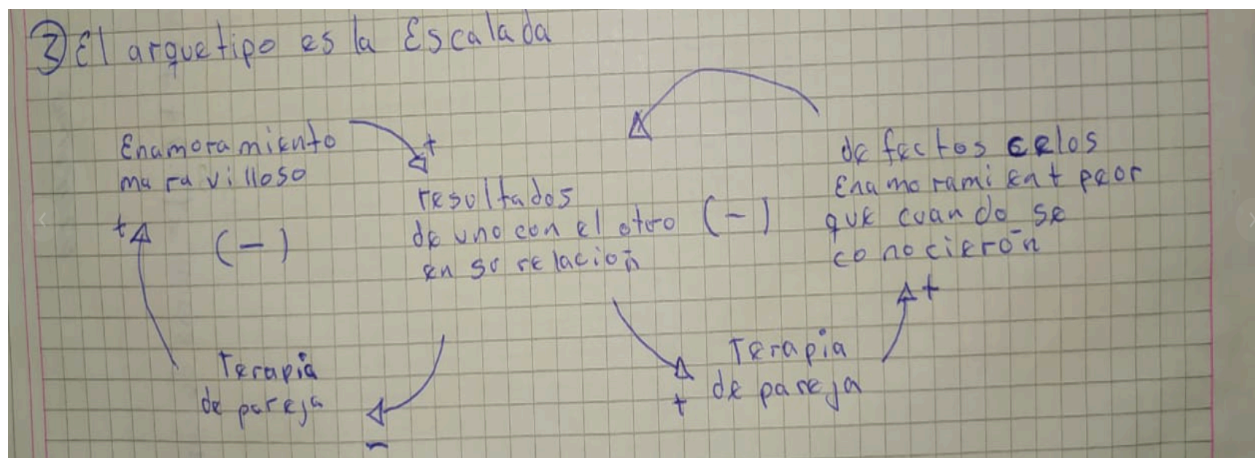 ③ El arquetipo es la Escalada
Enamoramiento
maravilloso
+
+
(-)
resultados
de uno con el otro
en su relación
(-)
defectos celos
Enamoramient peor
que cuando se
conocierón
+
Terapia
de pareja
-
Terapia
de pareja
+